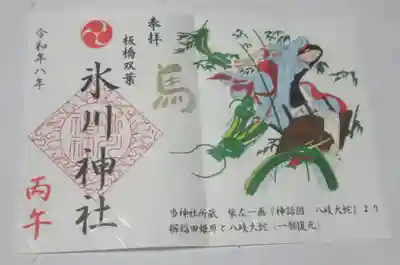 奉拝
板橋双葉
氷川神社
令和八年
丙午
馬
当神社所蔵 柴左一画「神話図 八岐大蛇」より
櫛稲田姫原と八岐大蛇(一部復元)